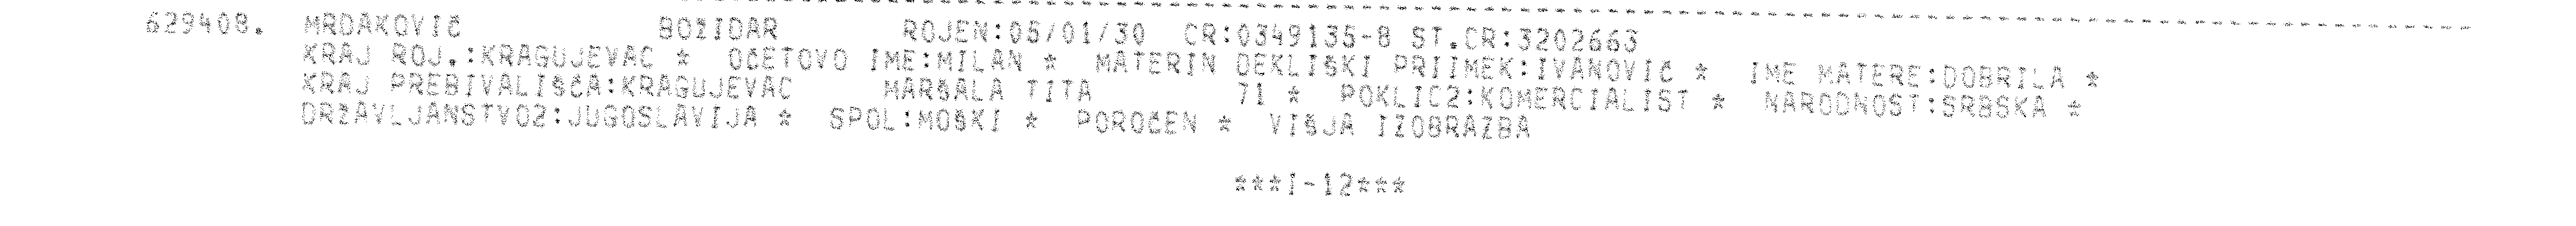 629408. MRDAKOVIČ BOŽIDAR ROJEN:05/01/30 CR:0349135-8 ST.CR:3202663
KRAJ ROJ.:KRAGUJEVAC * OČETOVO IME:MILAN * MATERIN DEKLIŠKI PRIIMEK:IVANOVIČ * IME MATERE:DOBRILA *
KRAJ PREBIVALIŠČA:KRAGUJEVAC MARŠALA TITA 71 * POKLIC2:KOMERCIALIST * NARODNOST:SRBSKA *
DRŽAVLJANSTVO2:JUGOSLAVIJA * SPOL:MOŠKI * POROČEN * VIŠJA IZOBRAZBA
***I-12***